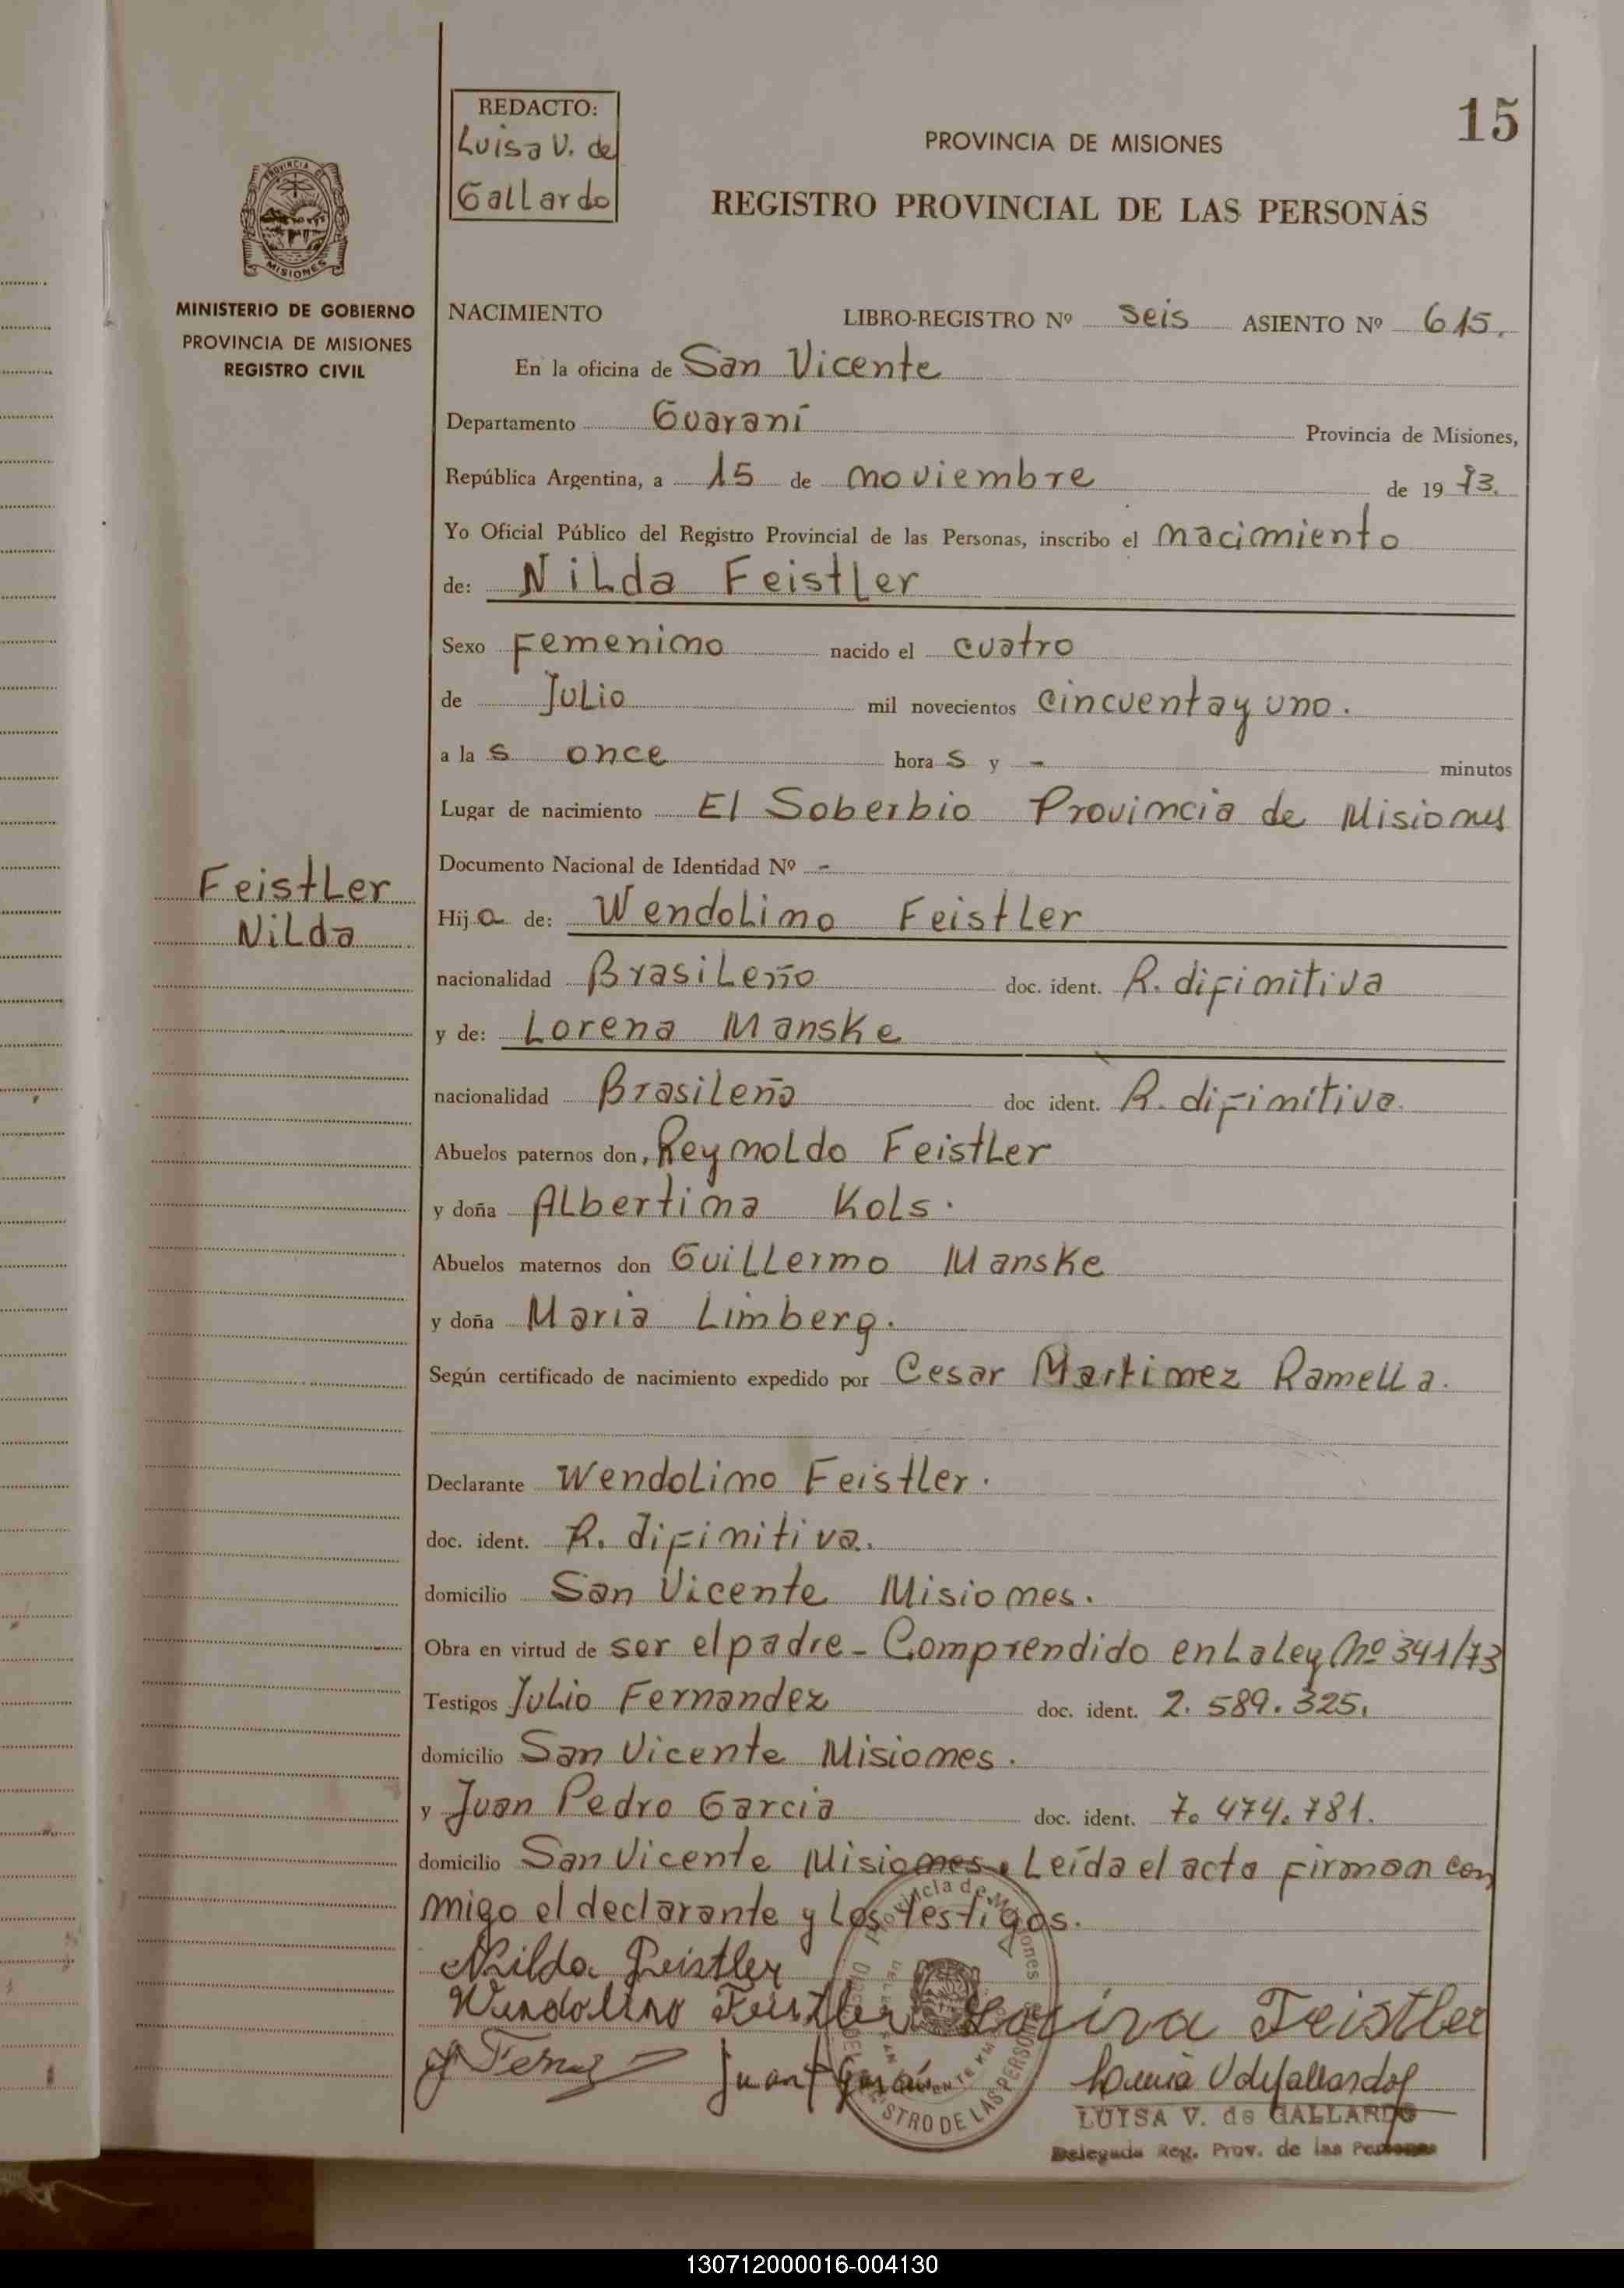 15
REDACTO:
Luisa V. de
Gallardo
PROVINCIA DE MISIONES
REGISTRO PROVINCIAL DE LAS PERSONAS
PROVINCIA DE
MISIONES
MINISTERIO DE GOBIERNO
PROVINCIA DE MISIONES
REGISTRO CIVIL
NACIMIENTO LIBRO-REGISTRO Nº seis ASIENTO Nº 615.
En la oficina de San Vicente
Departamento Guaraní Provincia de Misiones,
República Argentina, a 15 de noviembre de 19 73.
Yo Oficial Público del Registro Provincial de las Personas, inscribo el nacimiento
de: Nilda Feistler
Sexo Femenino nacido el cuatro
de Julio mil novecientos cincuenta y uno.
a la s once hora s y - minutos
Lugar de nacimiento El Soberbio Provincia de Misiones
Documento Nacional de Identidad Nº -
Feistler
Nilda
Hij a de: Wendolino Feistler
nacionalidad Brasileño doc. ident. R. difinitiva
y de: Lorena Manske
nacionalidad Brasileña doc ident. R. difinitiva.
Abuelos paternos don, Reynoldo Feistler
y doña Albertina Kols.
Abuelos maternos don Guillermo Manske
y doña Maria Limberg.
Según certificado de nacimiento expedido por Cesar Martinez Ramella.
Declarante Wendolino Feistler.
doc. ident. R. difinitiva.
domicilio San Vicente Misiones.
Obra en virtud de ser el padre - Comprendido en La Ley Nº 341/73
Testigos Julio Fernandez doc. ident. 2.589.325.
domicilio San Vicente Misiones.
y Juan Pedro Garcia doc. ident. 7.474.781.
domicilio San Vicente Misiones. Leída el acta firman con
migo el declarante y los testigos.
Provincia de Misiones
REGISTRO DE LAS PERSONAS
Nilda Feistler
Wendolino Feistler Feistler
Juan
LUISA V. de GALLARDO
Delegada Reg. Prov. de las Personas
130712000016-004130